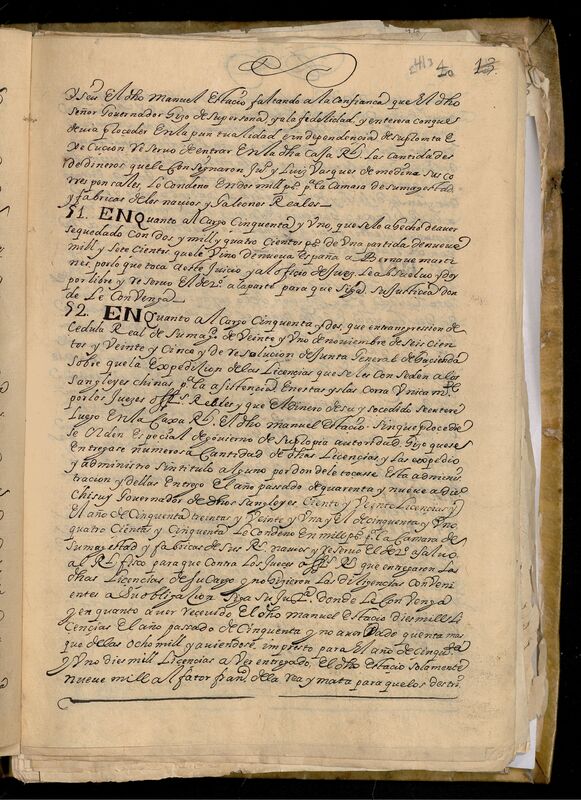 413 4 13.
Y Seu El dho Manuel Estacio faltando a la Confiança que El dho
Señor Governador hizo de su persona, y a la fedelidad y entereça con que
devia proceder En la puntualidad e independencia de su prompta E
xe Cucion Reservo de entrar En la dha Casa Rl. Las Cantidades
de dineros que le Consignaron Jul. y Luis Vasques de medina sus Co
rrespon sales, Lo Condeno En dos mill ps. pa la Camara de su magestad
y fabricas de los navios y Galeones Reales
51. EN quanto al Cargo Cinquenta y Uno, que se lo a hecho de aver
se quedado Con dos mill y quatro Cientos ps. de Una partida de nueve
mill y Sete Cientos que le Vino de nueva españa a Bernave marti
nes, por lo que toca a este Juicio y al officio de Jues, Le absuelvo y doy
por libre y Reservo El dro. a la parte para que siga Su Justicia don
de Le Convenga
52. EN quanto al Cargo Cinquenta y dos, que en transgresion de
Cedula Real de Su magd. de Veinte y Uno de noviembre de Seis Cien
tos y Veinte y Cinco y de Resolucion de Junta General de hacienda
Sobre que la Expedicion de las Licencias que se les Conseden a los
Sangleyes chinas pa la asistencia En estas yslas Corra Unicamte.
por los Jueces offes. Reales y que El dinero de su procedido Se entere
Luego En la Caxa Rl. El dho manuel Estacio Sin que procedie
Se Orden Especial de govierno de Su propia autoridad hizo que se
Entregase numerosa Cantidad de dhas Licencias y las expedio
y administro Sin titulo alguno por donde le tocase Esta adminis
tracion y dellas Entrego El año passado de quarenta y nueve a die
chisuy Governador de dhos Sangleyes Ciento y Veinte Licencias y
El año de Cinquenta treinta y Veinte y Una y El de Cinquenta y Uno
quatro Cientas y Cinquenta Lo Condeno En mill ps. pa la Camara de
Su magestad y fabricas de Sus Rs. navios y Reservo El dro. a Salvo
al Rl. fisco para que Contra Los Jueces offes. Rs. que entregaron Las
dhas Licencias de su Cargo y no hizieron Las diligencias Conveni
entes a Su obligacion Siga Su Justa. donde Le Convenga
y en quanto aver recevido El dho manuel Estacio dies mill Li
cencias El año passado de Cinquenta y no aver dado quenta mas
que de las Ocho mill y aviendose impreso para El año de Cinquenta
y Uno dies mill Licencias a Ver entregado El dho Estacio Solamente
nueve mill al fator fran. de la Rea y mata para que los destri